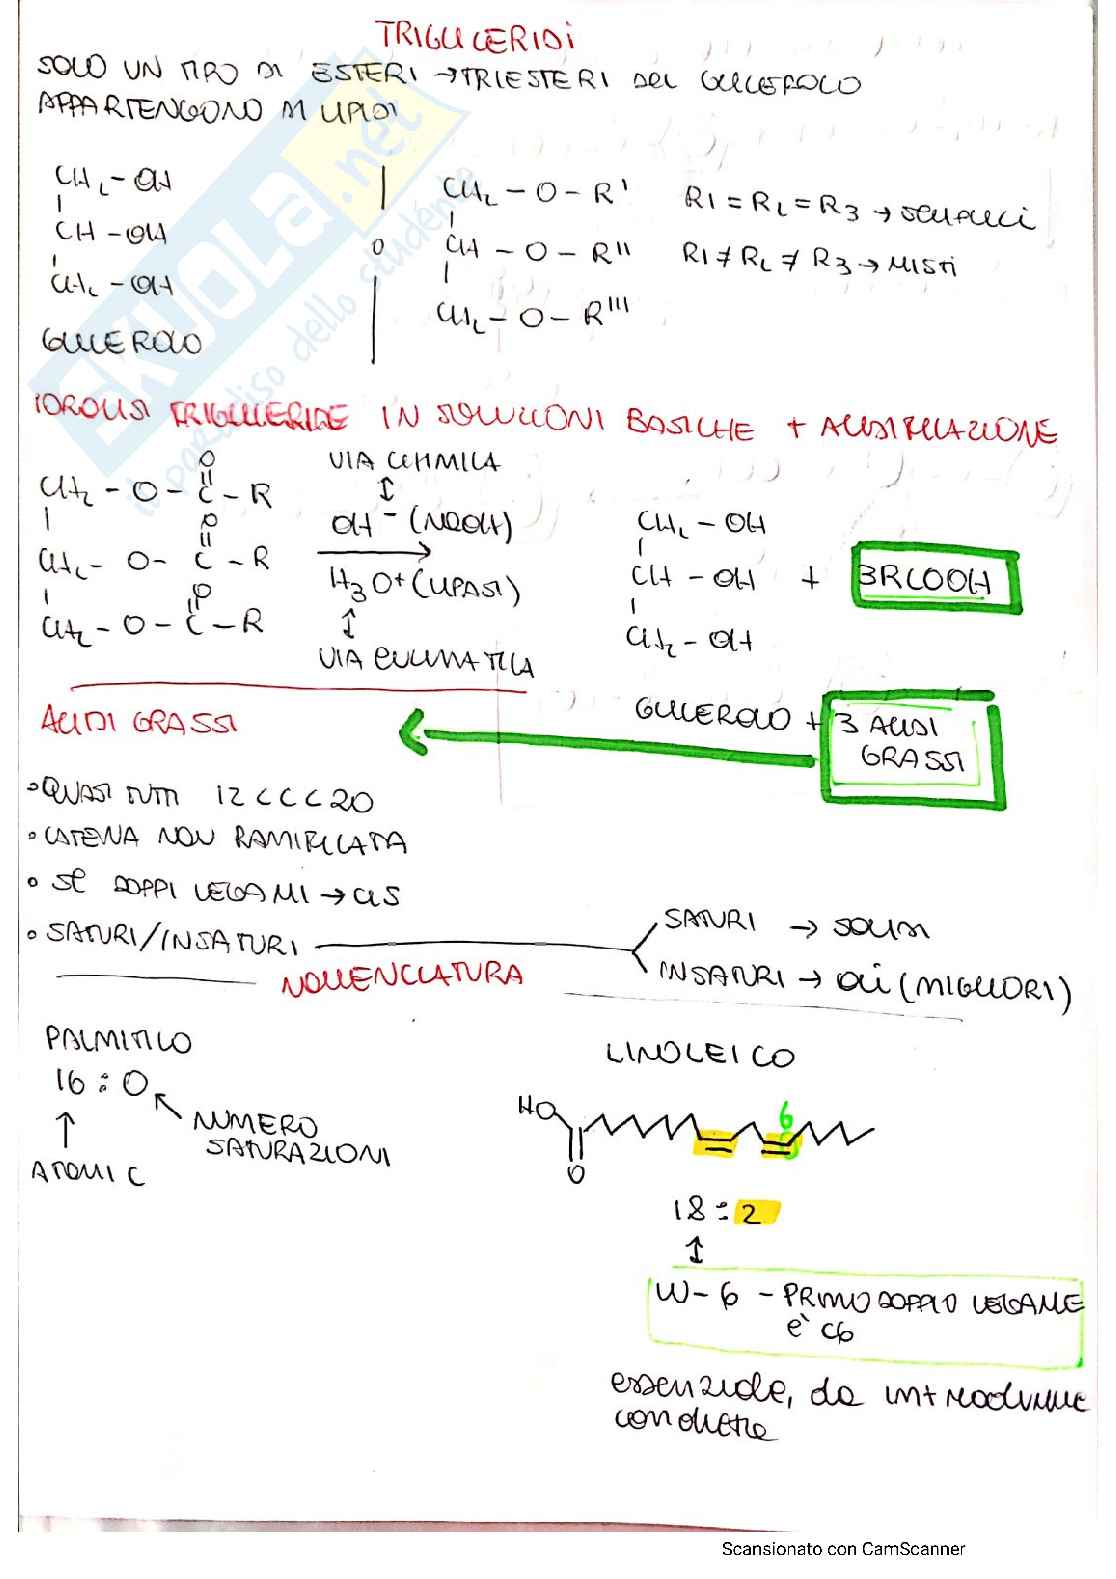 TRIGLICERIDI
SOLO UN TIPO DI ESTERI → TRIESTERI DEL GLICEROLO
APPARTENGONO AI LIPIDI
CH2 - OH
CH - OH
CH2 - OH
GLICEROLO
O
CH2 - O - R'
CH - O - R''
CH2 - O - R'''
R1 = R2 = R3 → SEMPLICI
R1 ≠ R2 ≠ R3 → MISTI
IDROLISI TRIGLICERIDE IN SOLUZIONI BASICHE + ACIDIFICAZIONE
O
CH2 - O - C - R
O
CH2 - O - C - R
O
CH2 - O - C - R
VIA CHIMICA
↕
OH- (NaOH)
H3O+ (LIPASI)
↕
VIA ENZIMATICA
CH2 - OH
CH - OH + 3RCOOH
CH2 - OH
GLICEROLO + 3 ACIDI
GRASSI
ACIDI GRASSI
• QUASI TUTTI 12 < C < 20
• CATENA NON RAMIFICATA
• SE DOPPI LEGAMI → CIS
• SATURI/INSATURI
SATURI → SOLIDI
INSATURI → OLI (MIGLIORI)
NOMENCLATURA
PALMITICO
16 : 0
NUMERO
SATURAZIONI
ATOMI C
LINOLEICO
HO
O
6
18 : 2
↕
W-6 - PRIMO DOPPIO LEGAME
è C6
essenziale, da introdurre
con dieta
SKUOLA.net
il paradiso dello studente
Scansionato con CamScanner